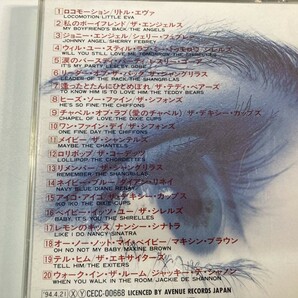 1 ロコモーション/リトル・エヴァ
LOCOMOTION LITTLE EVA
2 私のボーイフレンド/ザ・エンジェルス
MY BOYFRIEND'S BACK THE ANGELS
3 ジョニー・エンジェル/シェリー・フェブレー
JOHNNY ANGEL SHERRY FEBRET
4 ウィル・ユー・スティル・ラヴ・ミー・トゥモロウ
WILL YOU STILL LOVE ME TOMORROW
5 涙のバースディ・パーティ/レスリー・ゴーア
IT'S MY PARTY LESLEY GORE
6 リーダー・オブ・ザ・パック/ザ・シャングリラス
LEADER OF THE PACK THE SHANGRI-LAS
7 逢ったとたんにひとめぼれ/ザ・テディ・ベアーズ
TO KNOW HIM IS TO LOVE HIM THE TEDDY BEARS
8 ヒーズ・ソー・ファイン/ザ・シフォンズ
HE'S SO FINE THE CHIFFONS
9 チャペル・オブ・ラヴ(愛のチャペル)/ザ・デキシー・カップス
CHAPEL OF LOVE THE DIXIE CUPS
10 ワン・ファイン・デイ/ザ・シフォンズ
ONE FINE DAY THE CHIFFONS
11 メイビー/ザ・シャンテルズ
MAYBE THE CHANTELS
12 ロリポップ/ザ・コーデッツ
LOLLIPOP THE CHORDETTES
13 リメンバー/ザ・シャングリラス
REMEMBER THE SHANGRI-LAS
14 ネイビー・ブルー/ダイアン・リネイ
NAVY BLUE DIANE RENAY
15 アイコ アイコ/ザ・デキシー・カップス
IKO IKO THE DIXIE CUPS
16 ベイビー・イッツ・ユー/ザ・シレルズ
BABY, IT'S YOU THE SHIRELLES
17 レモンのキッス/ナンシー・シナトラ
LIKE I DO/NANCY SINATRA
18 オー・ノー・ノット・マイ・ベイビー/マキシン・ブラウン
OH NO NOT MY BABY/MAXINE BROWN
19 テル・ヒム/ザ・エキサイターズ
TELL HIM/THE EXITERS
20 ウォーク・イン・ザ・ルーム/ジャッキー・デ・シャノン
WHEN YOU WALK IN THE ROOM/JACKIE DE SHANON
('94.4.21) X Y CECC-00668 LICENCED BY AVENUE RECORDS JAPAN